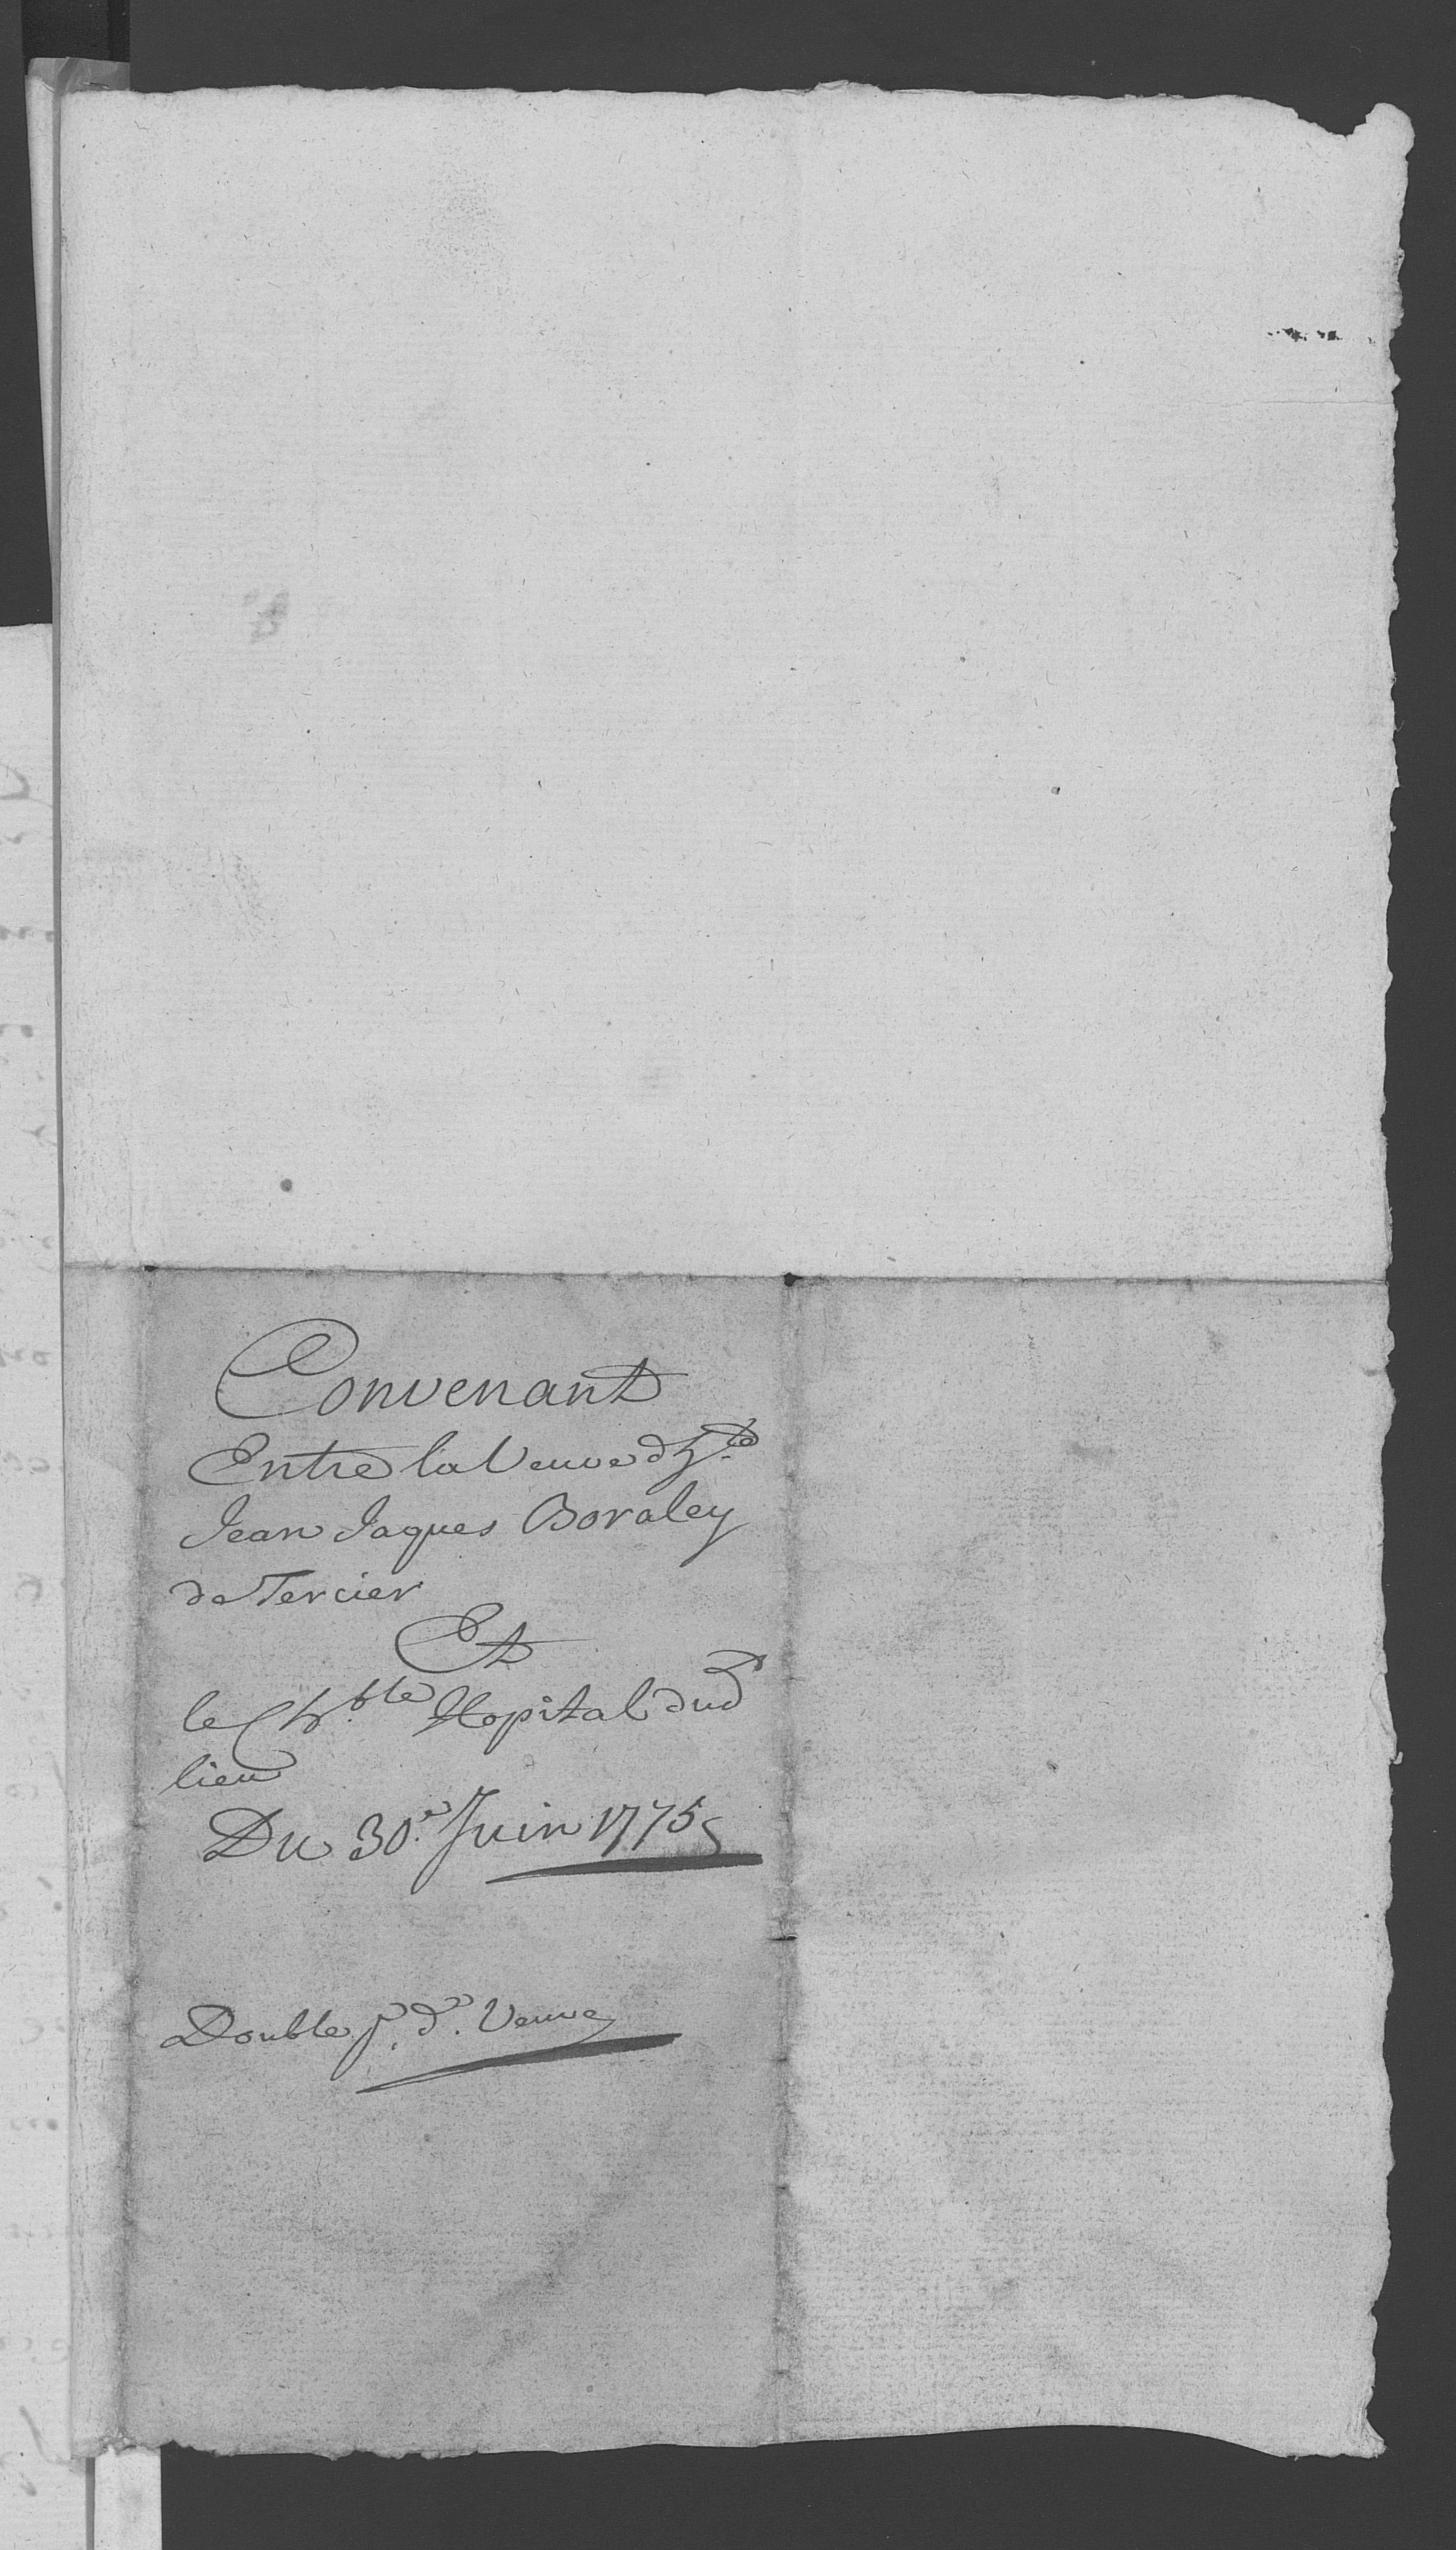 Convenant
Entre la Veuve d'h.te
Jean Jaques Bovaley
de Tercier
Et
le Ch.ble Hopital dud.t
lieu
Du 30.e Juin 1775
Double p.r d.e Veuve